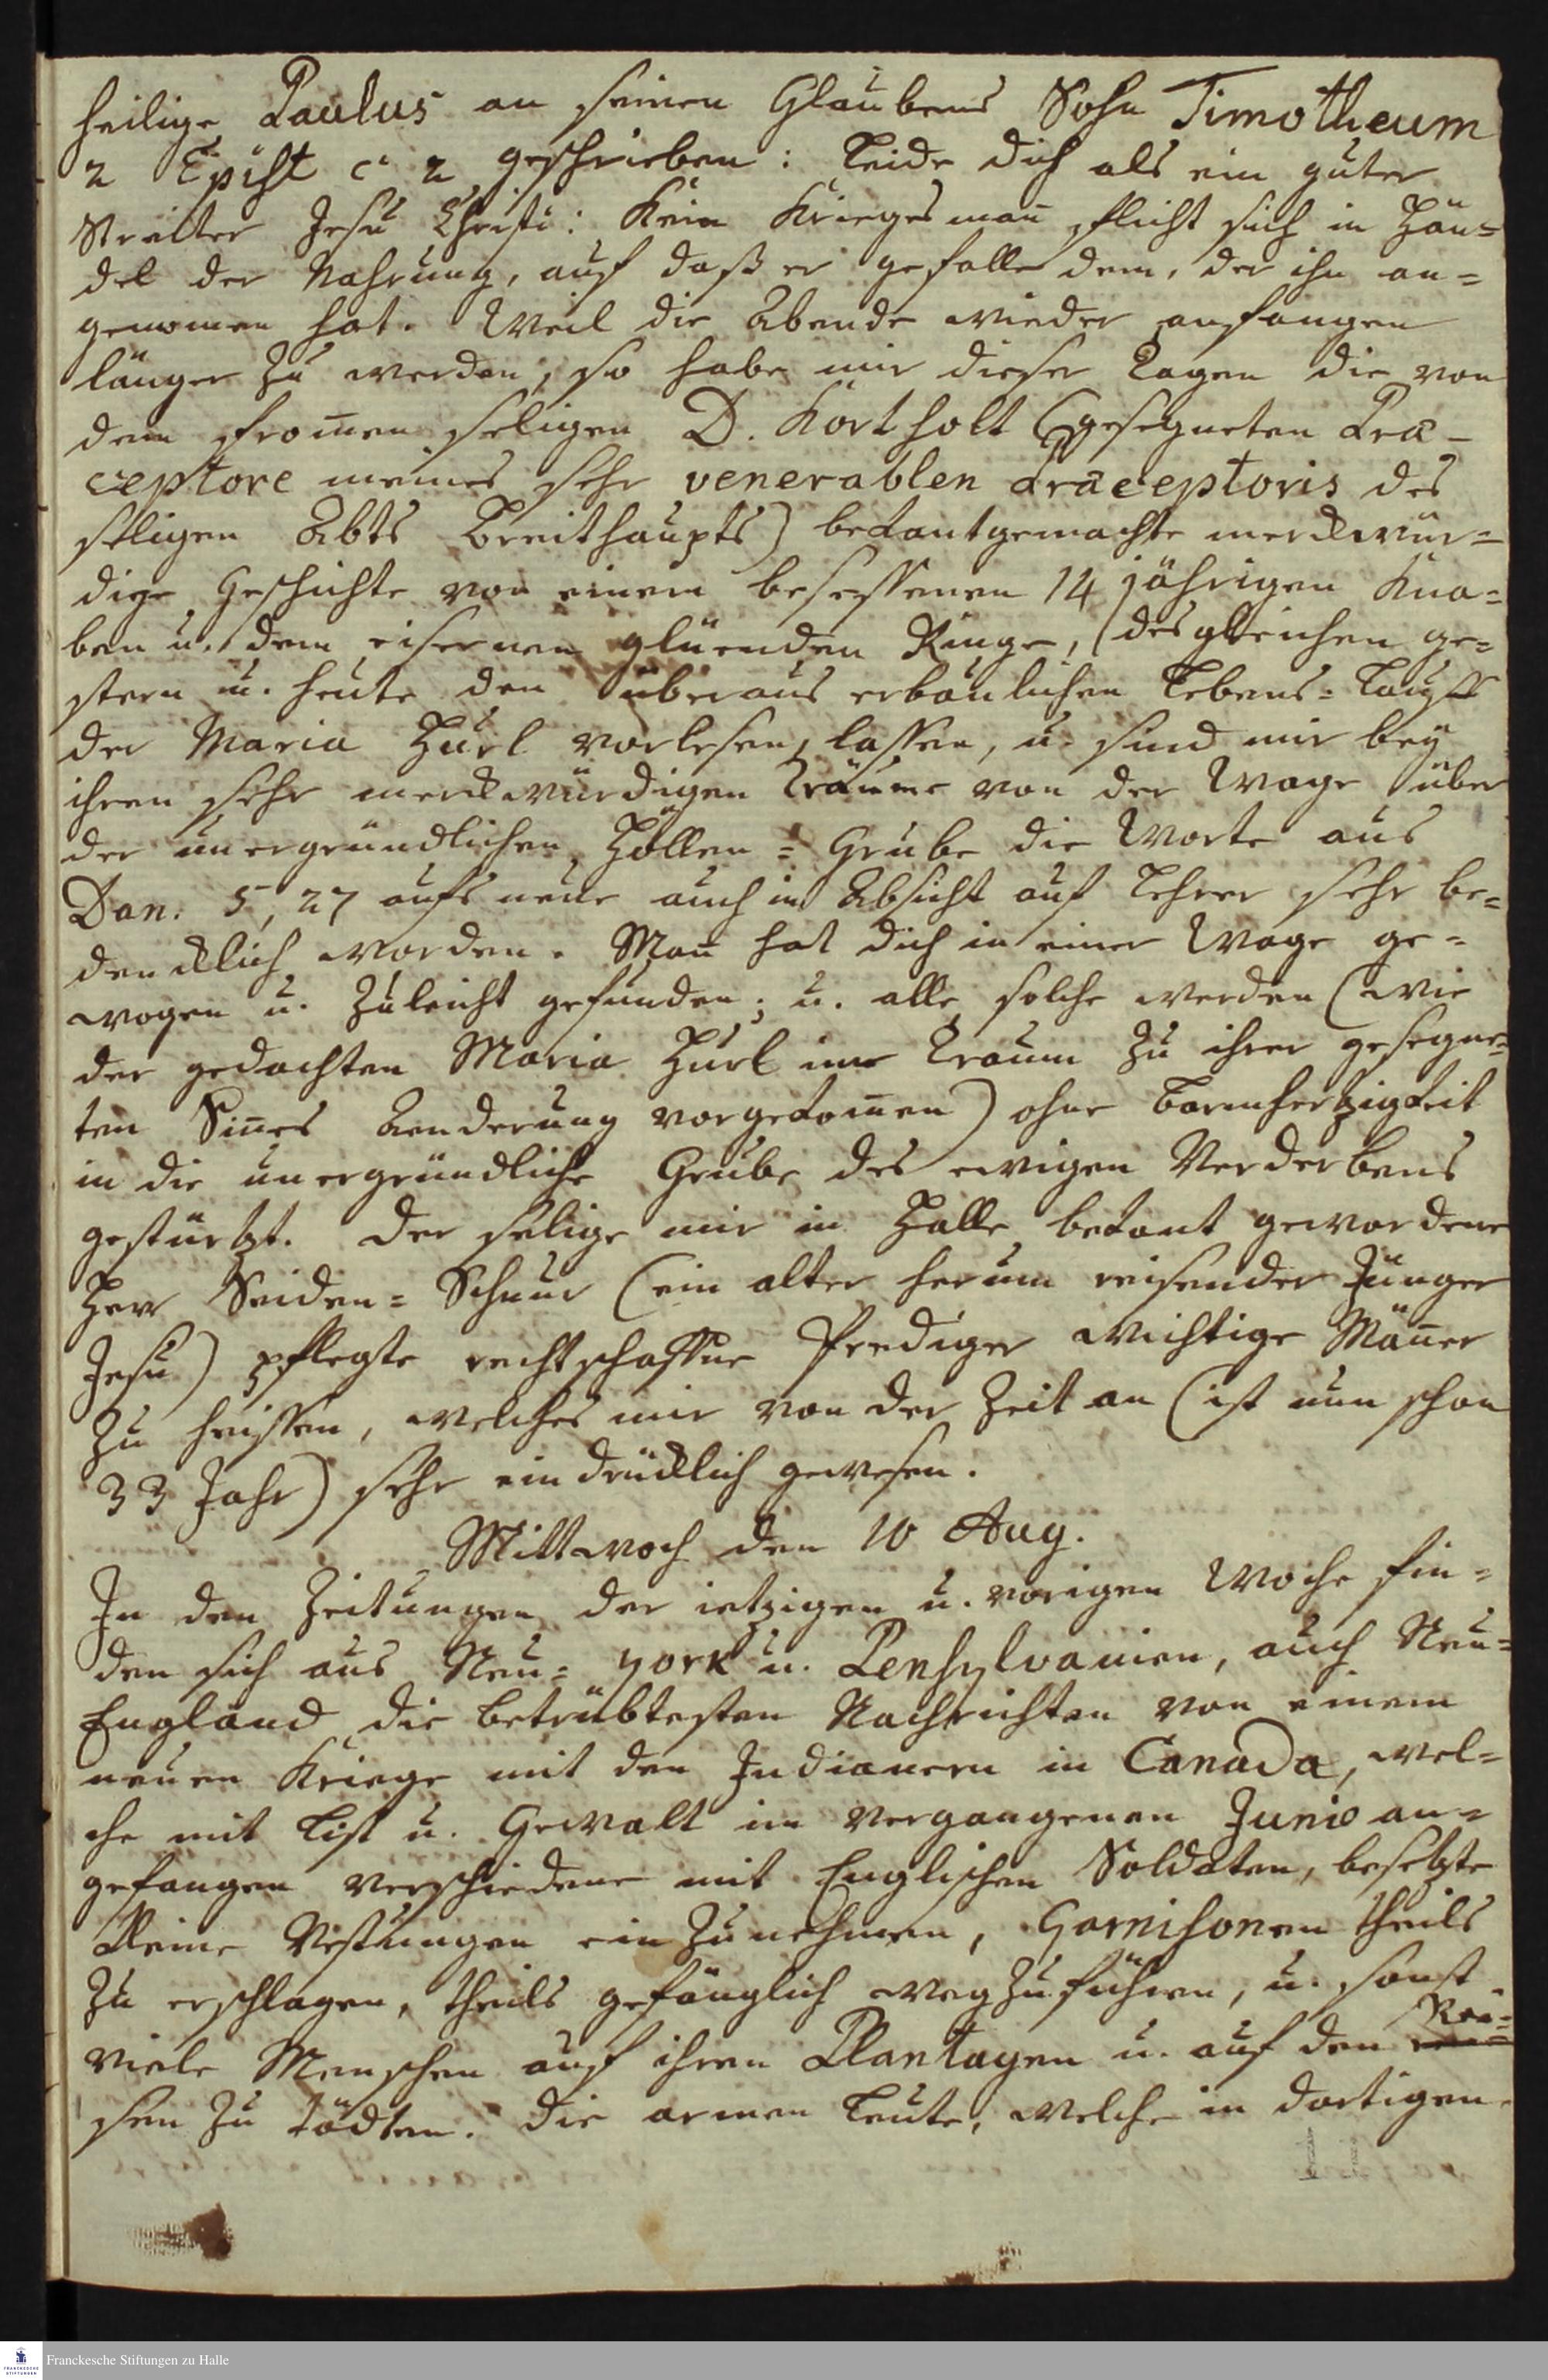 heilige Paulus an seinen Glaubens Sohn Timotheum
2 Epist c. 2 geschrieben: Leide dich als ein guter
Streiter Jesu Christi: Kein Kriegesman̄ flicht sich in Hän-
del der Nahrung, auf daß er gefalle dem, der ihn an-
genom̄en hat. Weil die Abende wieder anfangen
länger zu werden, so habe mir dieser Tagen die von
dem from̄en seligen D. Kortholt (gesegneten Præ-
ceptore meines sehr venerablen Præceptoris des
seligen Abts Breithaupts) bekantgemachte merckwür-
dige Geschichte von einem besessenen 14 jährigen Kna-
ben u. dem eisernen glüenden Ringe, desgleichen ge-
stern u. heute den überaus erbaulichen Lebens-Lauff
der Maria Hurl vorlesen lassen, u. sind mir bey
ihren sehr merckwürdigen Träume von der Wage über
der unergründlichen Höllen-Grube die Worte aus
Dan. 5, 27 aufs neue auch in Absicht auf Lehrer sehr be-
dencklich worden. Man̄ hat dich in einer Wage ge-
wogen u. zu leicht gefunden; u. alle solche werden (wie
der gedachten Maria Hurl im Traum zu ihrer gesegne-
ten Sin̄es Aenderung vorgekom̄en) ohne Barmhertzigkeit
in die unergründliche Grube des ewigen Verderbens
gestürtzt. Der selige mir in Halle bekant gewordene
Herr Seiden-Schnur (ein alter herum reisender Jünger
Jesu) pflegte rechtschaffne Prediger wichtige Män̄er
zu heissen, welches mir von der Zeit an (ist nun schon
33 Jahr) sehr eindrücklich gewesen.
Mittwoch den 10 Aug.
In den Zeitungen der ietzigen u. vorigen Woche fin-
den sich aus Neu-york u. Pensylvanien, auch Neu-
England die betrübtesten Nachrichten von einem
neuen Kriege mit den Indianern in Canada, wel-
che mit List u. Gewalt im vergangenen Junio an-
gefangen verschiedene mit Englischen Soldaten, besetzte
kleine Vestungen einzunehmen, Garnisonen theils
zu erschlagen, theils gefänglich wegzuführen, u. sonst
viele Menschen auf ihren Plantagen u. auf den Rei-
sen zu tödten. Die armen Leute, welche in dortigen
Franckesche Stiftungen zu Halle